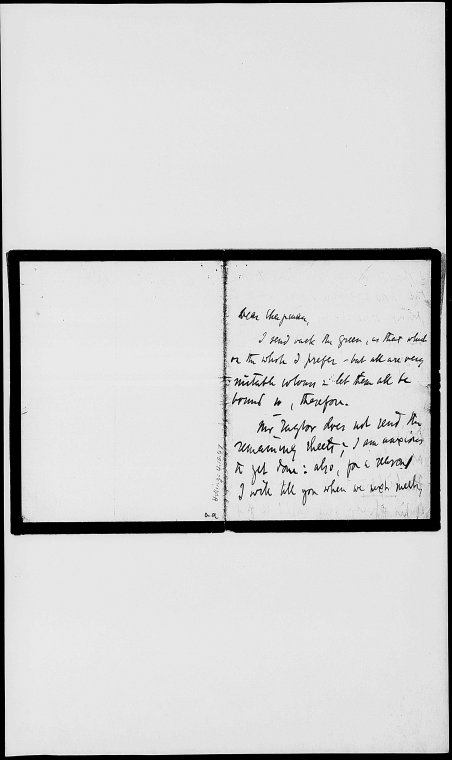 Dear Chapman,
I send back the green, as that which
on the whole I prefer - but all are very
suitable colours - let them all be
bound so, therefore.
Mr Taylor does not send the
remaining sheets; I am anxious
to get done: also, for a reason
I will tell you when we next meet,